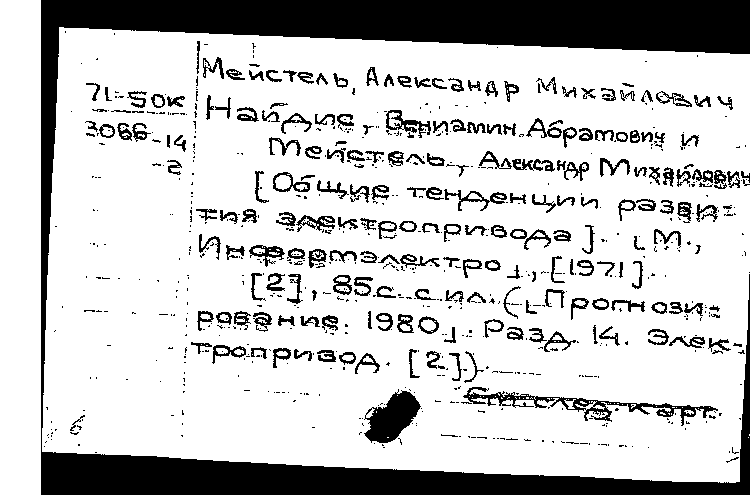 Мейстель, Александр Михайлович
71-50к
Найдис, Вениамин Абрамович и
3066-14
Мейстель, Александр Михайлович
-2
[Общие тенденции разви-
тия электропривода]. [М.,
Информэлектро], [1971].
[2], 85с. с ил. ([Прогнози-
рование. 1980]. Разд. 14. Элек-
тропривод. [2]).
См. след. карт.
6